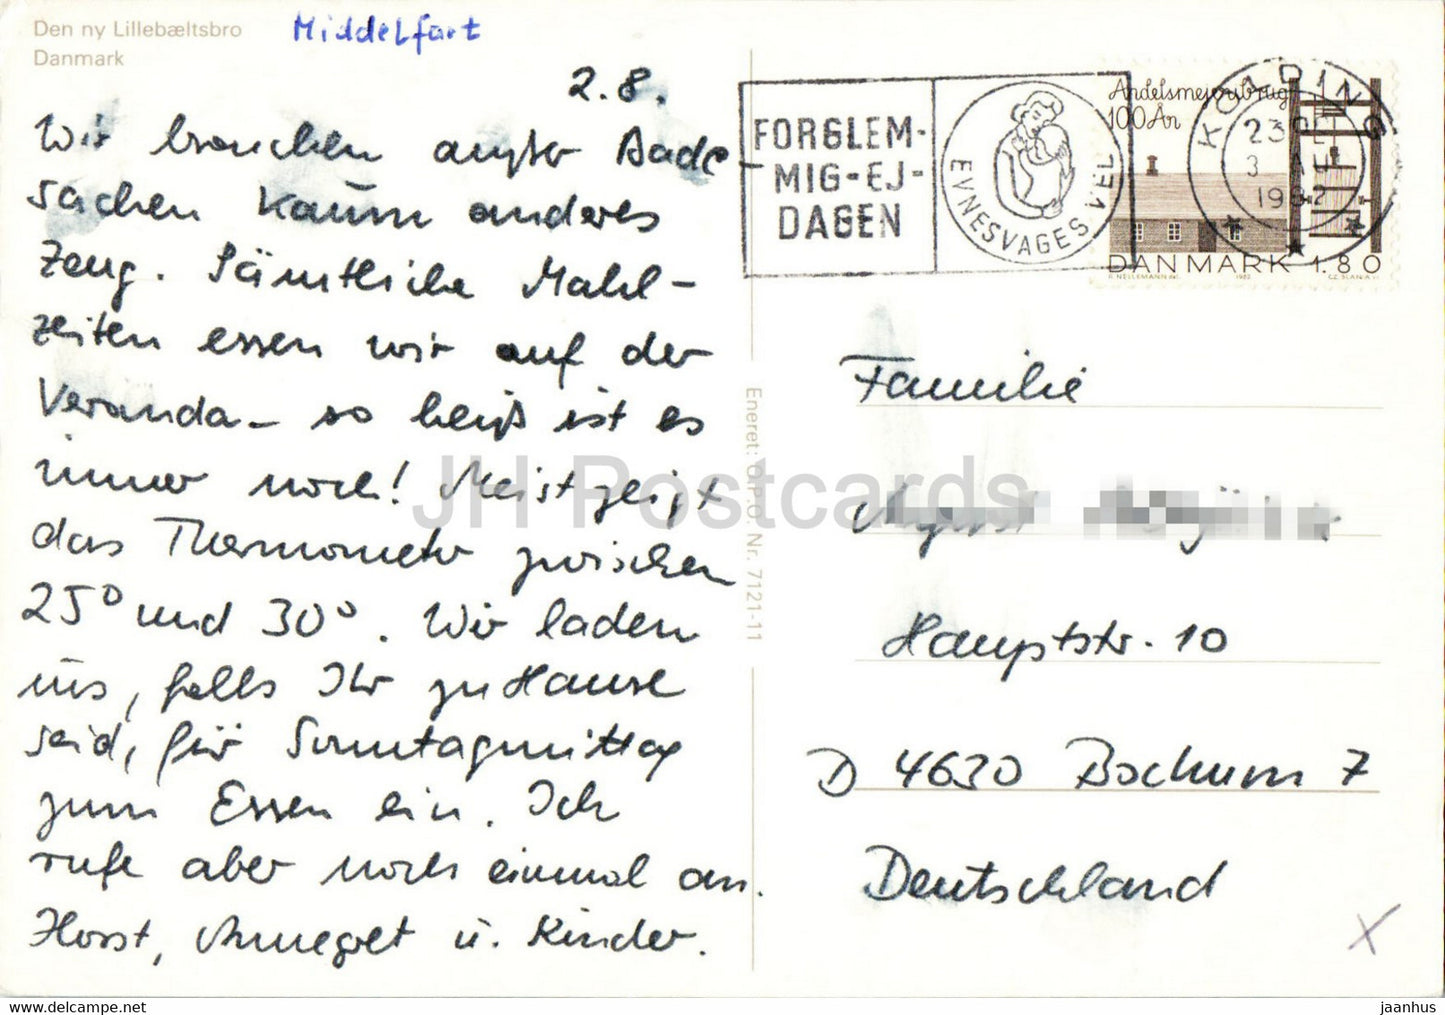 Den ny Lillebæltsbro
Danmark
Middelfart
2.8.
Wir brauchen außer Bade-
sachen kaum anderes
Zeug. Sämtliche Mahl-
zeiten essen wir auf der
Veranda - so heiß ist es
immer noch! Meist zeigt
das Thermometer zwischen
25° und 30°. Wir laden
uns, falls Ihr zu Hause
seid, für Sonntagmittag
zum Essen ein. Ich
rufe aber noch einmal an.
Horst, Annegret u. Kinder.
Eneret: O.P.O. Nr. 7121-11
FORGLEM-
MIG-EJ-
DAGEN
EVNESVAGES VEL
Andelsmejeribrug
100 År
DANMARK 1.80
KOLDING
1982
Familie
August
Hauptstr. 10
D 4630 Bochum 7
Deutschland
X
JH Postcards
jaanhus